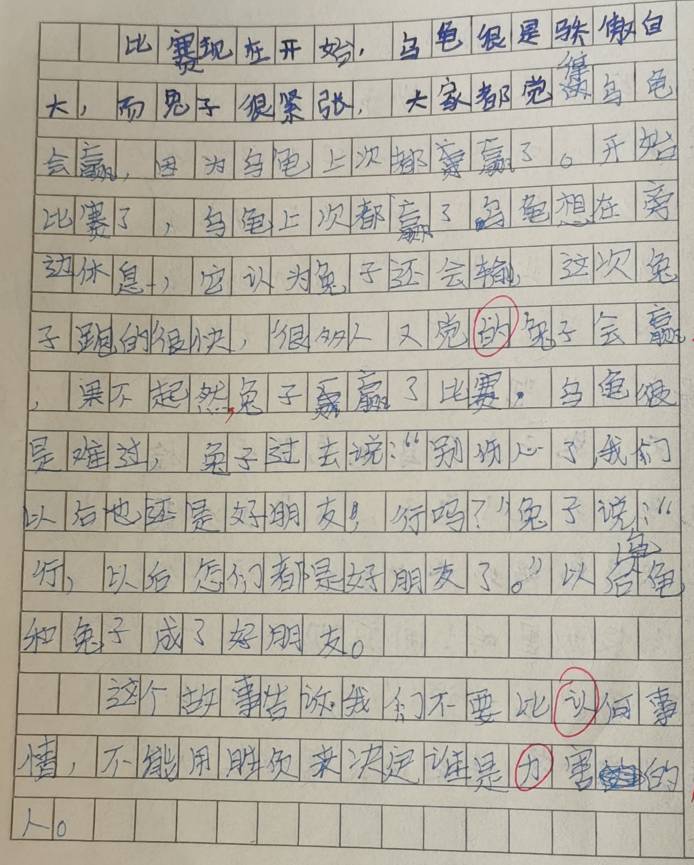 比赛现在开始，乌龟很是骄傲自
大，而兔子很紧张，大家都觉得乌龟
会赢，因为乌龟上次都赢了。开始
比赛了，乌龟上次都赢了乌龟想在旁
边休息，它认为兔子还会输，这次兔
子跑的很快，很多人又觉的兔子会赢
，果不起然，兔子赢了比赛，乌龟很
是难过，兔子过去说：“别伤心了，我们
以后也还是好朋友！行吗？”兔子说：“
行，以后怎们都是好朋友了。”以后乌龟
和兔子成了好朋友。
这个故事告诉我们不要比认何事
情，不能用胜负来决定谁是力害的
人。